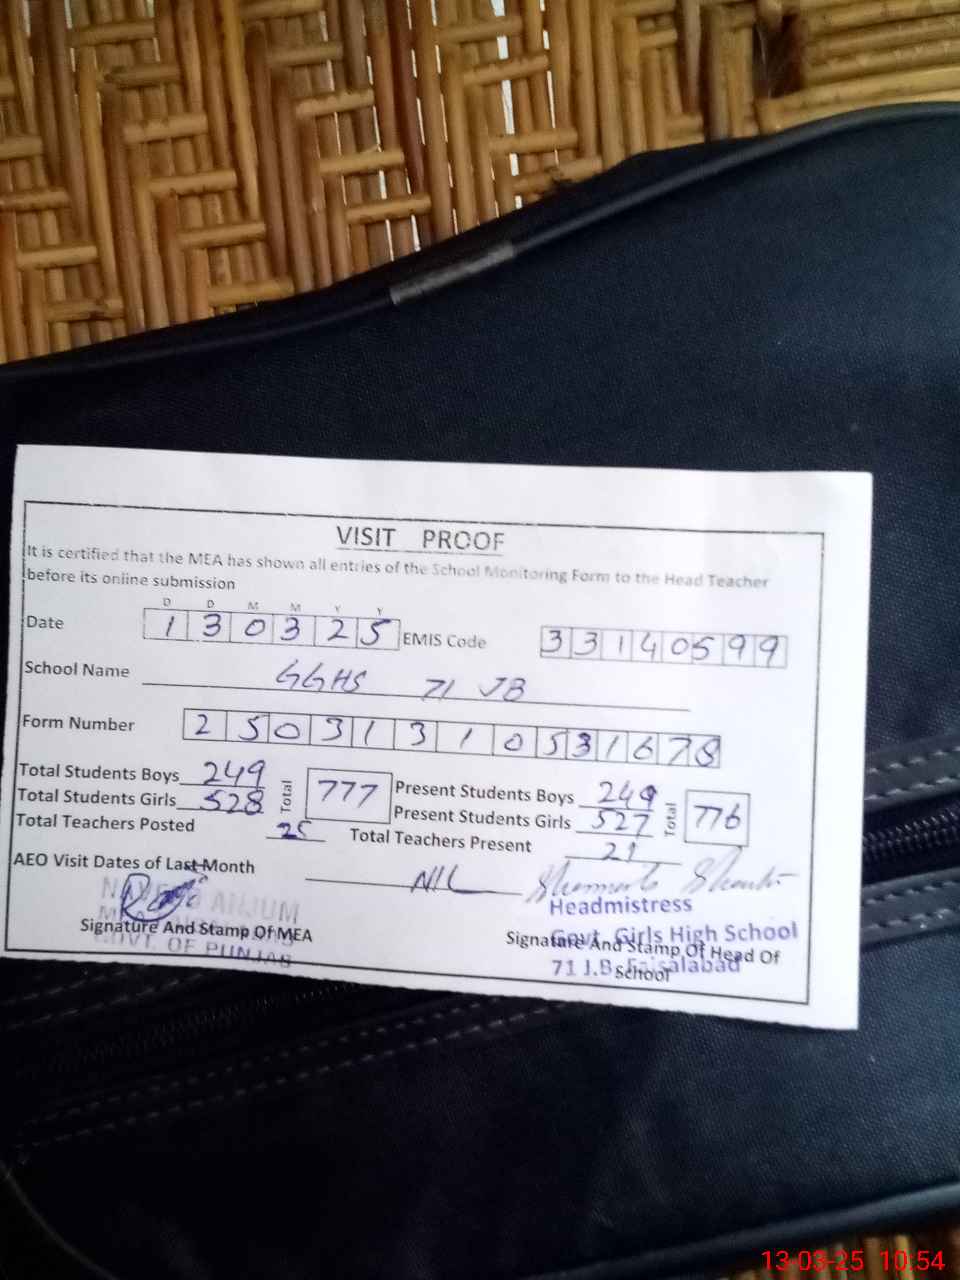 VISIT PROOF
It is certified that the MEA has shown all entries of the School Monitoring Form to the Head Teacher
before its online submission
D D M M Y Y
Date 1 3 0 3 2 5 EMIS Code 3 3 1 4 0 5 9 9
School Name GGHS 71 JB
Form Number 2 5 0 3 1 3 1 0 5 3 1 6 7 8
Total Students Boys 249 Total 777 Present Students Boys 249 Total 776
Total Students Girls 528 Present Students Girls 527
Total Teachers Posted 25 Total Teachers Present 21
AEO Visit Dates of Last Month NIL
ANJUM
Headmistress
Signature And Stamp Of MEA
GOVT. OF PUNJAB
Govt. Girls High School
Signature And Stamp Of Head Of
School
71 J.B. Faisalabad
13-03-25 10:54